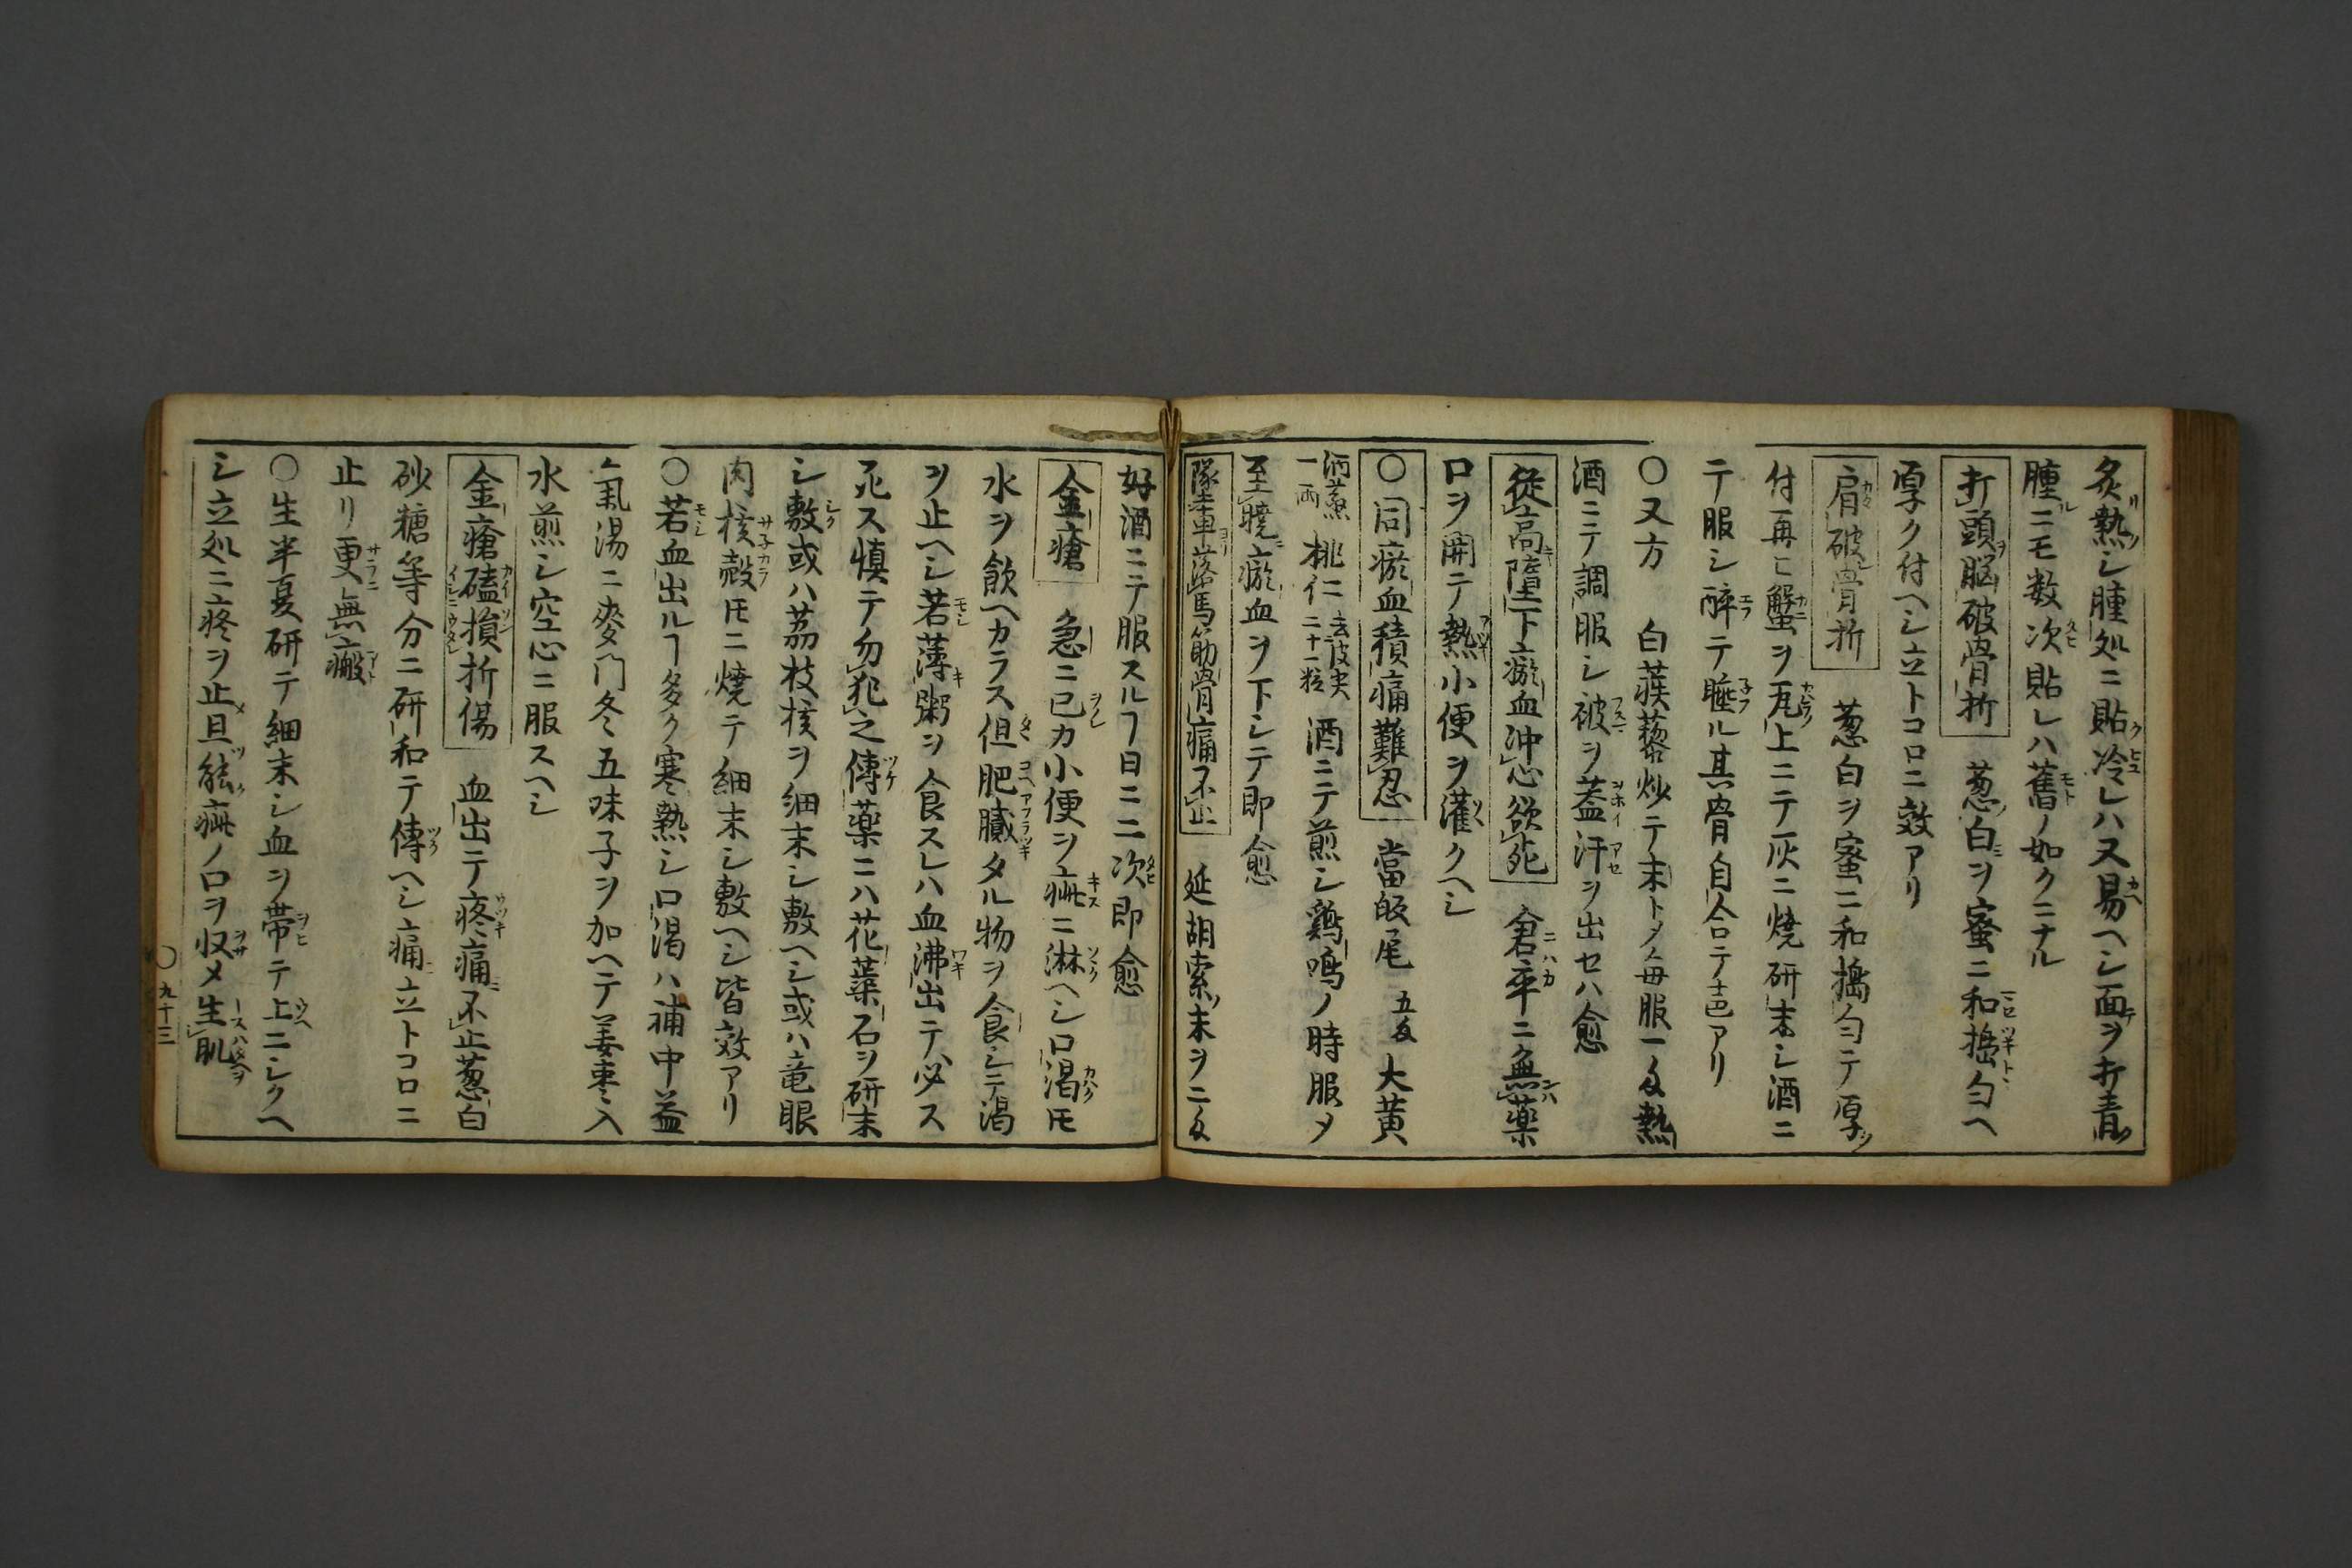 炙熱シ腫処ニ貼冷レハ又易ヘシ面ヲ打青
腫ニモ数次貼レハ舊ノ如クニナル
打頭脳破骨折 葱白ヲ蜜ニ和搗匀ヘ
厚ク付ヘシ立トコロニ效アリ
肩破骨折 葱白ヲ蜜ニ和搗匀テ厚
付再ヒ蟹ヲ瓦上ニテ灰ニ焼研末シ酒ニ
テ服シ酔テ睡ル其骨自合テ声アリ
〇又方 白蒺藜炒テ末トメ毎服一匁熱
酒ニテ調服シ被ヲ蓋汗ヲ出セハ愈
従高墮下瘀血沖心欲死 倉卒ニ無薬
口ヲ開テ熱小便ヲ灌クヘシ
〇同瘀血積痛難忍 當皈尾五匁 大黄
酒蒸一両 桃仁去皮尖二十一粒 酒ニテ煎シ鶏鳴ノ時服メ
至曉瘀血ヲ下シテ即愈
墜車落馬筋骨痛不止 延胡索末ヲ二匁
好酒ニテ服スルヿ日ニ二次即愈
金瘡 急ニ已カ小便ヲ疵ニ淋ヘシ口渇モ
水ヲ飲ヘカラス但肥膩タル物ヲ食シテ渇
ヲ止ヘシ若薄粥ヲ食スレハ血沸出テ必ス
死ス慎テ勿犯之傅薬ニハ花蘂石ヲ研末
シ敷或ハ茘枝核ヲ細末シ敷ヘシ或ハ竜眼
肉核殻トモニ焼テ細末シ敷ヘシ皆效アリ
〇若血出ルヿ多ク寒熱シ口渇ハ補中益
氣湯ニ麥門冬五味子ヲ加ヘテ姜棗入
水煎シ空心ニ服スヘシ
金瘡磕損折傷 血出テ疼痛不止葱白
砂糖等分ニ研和テ傅ヘシ痛立トコロニ
止リ更無瘢
〇生半夏研テ細末シ血ヲ帯テ上ニシクヘ
シ立処ニ疼ヲ止且能疵ノ口ヲ収メ生肌
〇九十三